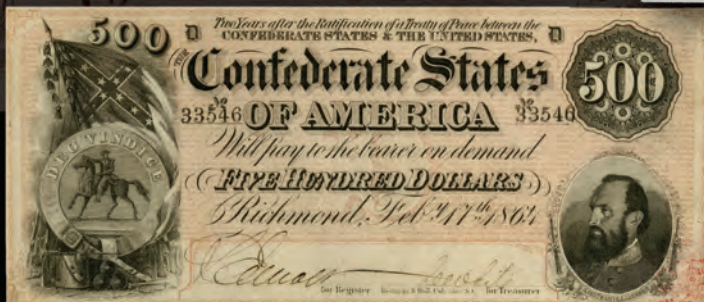 500 D Two Years after the Ratification of a Treaty of Peace between the D
CONFEDERATE STATES & THE UNITED STATES,
THE
Confederate States
500
No 33546 OF AMERICA No 33546
Will pay to the bearer on demand
DEO VINDICE
FIVE HUNDRED DOLLARS
Richmond, Feby 17th 1864
for Register for Treasurer